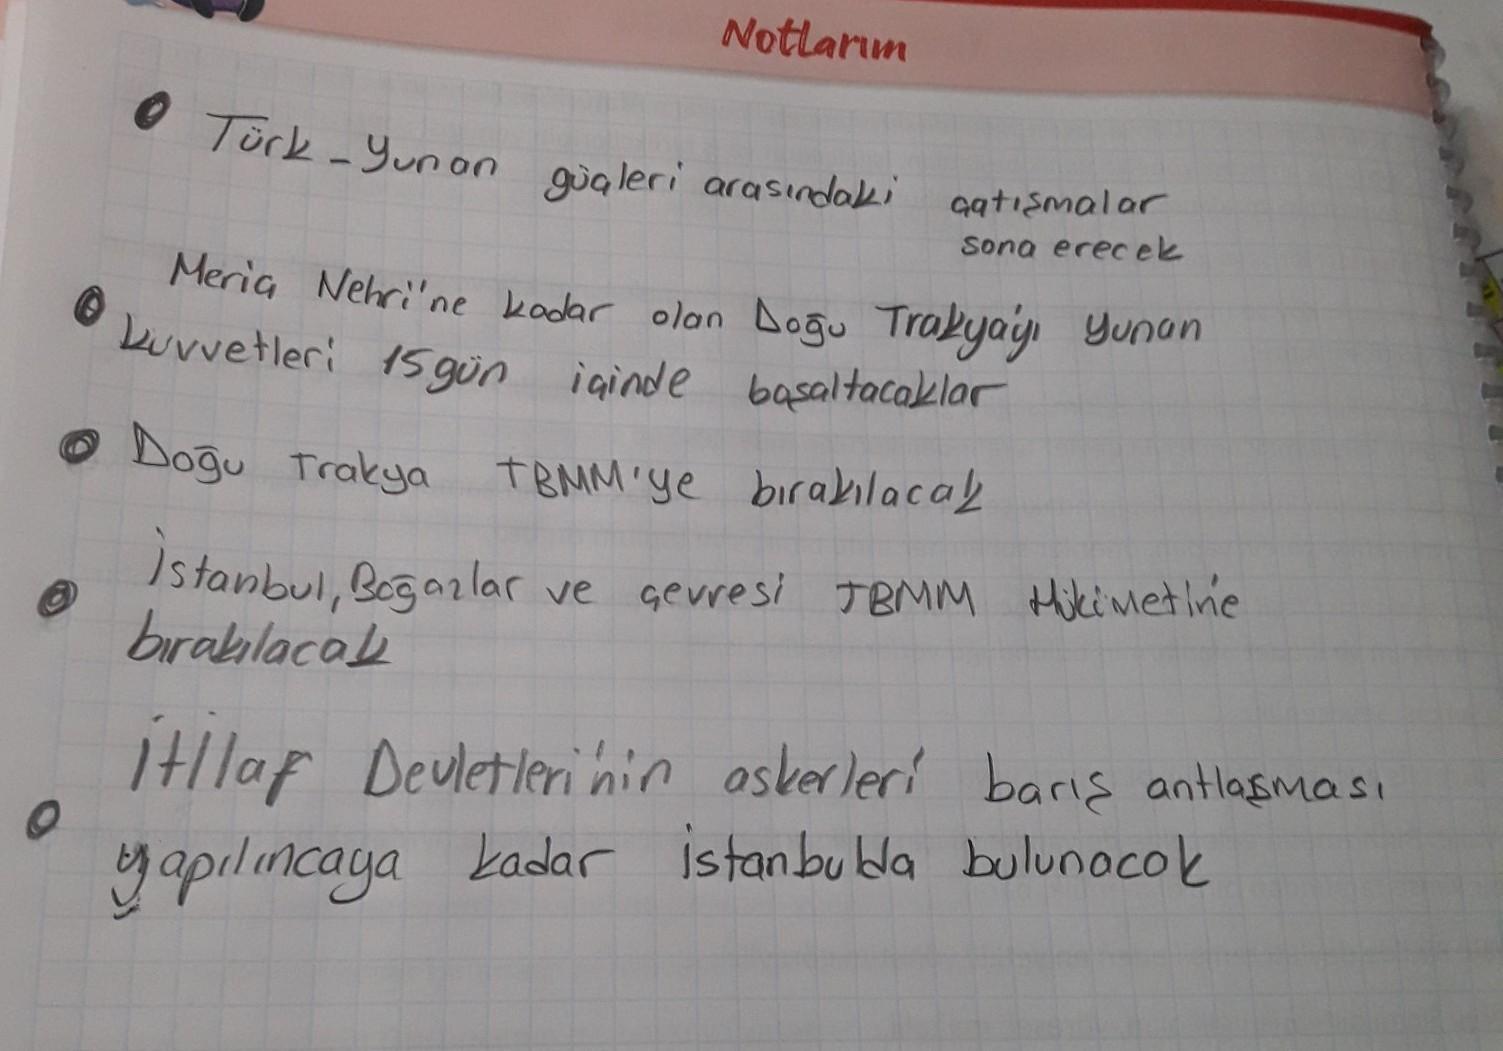 Notlarım
Türk-Yunan güçleri arasındaki çatışmalar
sona erecek
Meriç Nehri'ne kadar olan Doğu Trakya'yı Yunan
kuvvetleri 15 gün içinde başaltacaklar
Doğu Trakya TBMM'ye bırakılacak
İstanbul, Boğazlar ve çevresi TBMM Hükimeti'ne
bırakılacak
İtilaf Devletleri'nin askerleri barış antlaşması
yapılıncaya kadar İstanbulda bulunacak